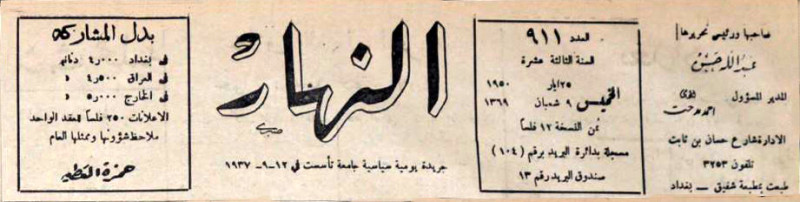 صاحبها ورئيس تحريرها
عبد الله حسن
المدير المسؤول
احمد مدحت
الادارة شارع حسان بن ثابت
تلفون ٣٢٥٣
طبعت بمطبعة شفيق – بغداد
العدد ٩١١
السنة الثالثة عشرة
الخميس
٢٥ ايار ١٩٥٠
٩ شعبان ١٣٦٩
ثمن النسخة ١٢ فلساً
مسجلة بدائرة البريد برقم (١٠٤)
صندوق البريد رقم ١٣
النهار
جريدة يومية سياسية جامعة تأسست في ١٢-٩-١٩٣٧
بدل المشاركة
في بغداد ٤٫٠٠٠ دنانير
في العراق ٤٫٥٠٠ »
في الخارج ٥٫٠٠٠ »
الاعلانات ٢٥٠ فلساً للعقد الواحد
ملاحظ شؤونها وممثلها العام
حمزة